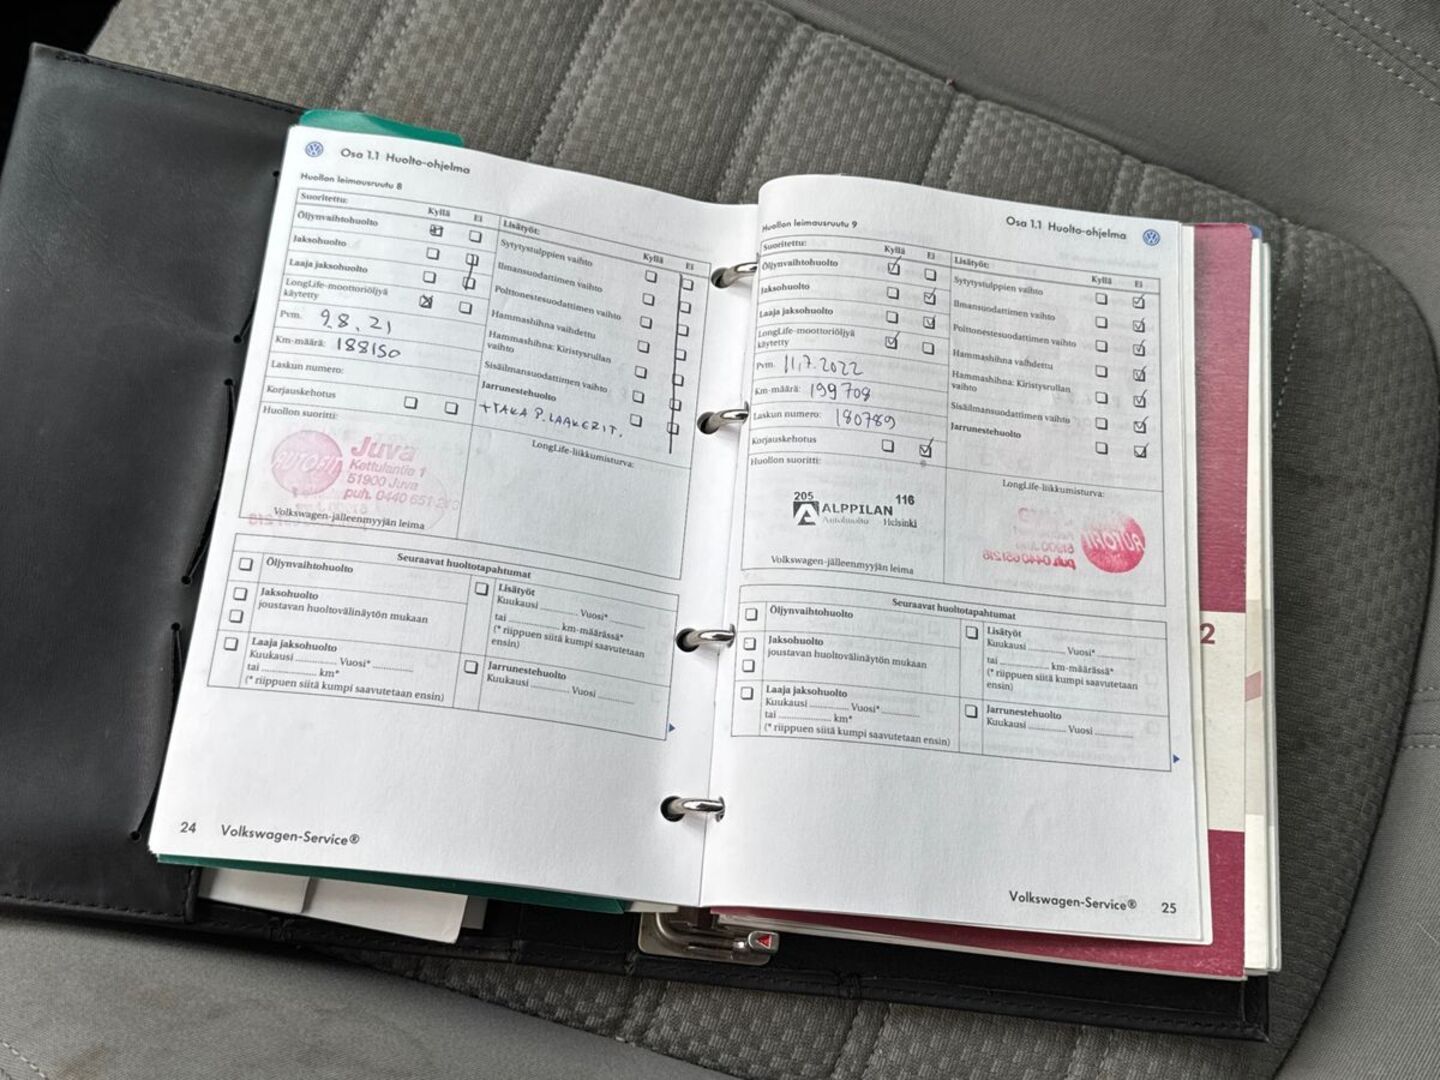 Osa 1.1 Huolto-ohjelma
Huollon leimausruutu 8
Suoritettu: Kyllä Ei
Öljynvaihtohuolto
Jaksohuolto
Laaja jaksohuolto
LongLife-moottoriöljyä
käytetty
Pvm. 9.8.21
Km-määrä: 188150
Laskun numero:
Korjauskehotus
Huollon suoritti:
Juva
Kottulantie 1
51900 Juva
puh. 0440 651 216
Volkswagen-jälleenmyyjän leima
Lisätyöt: Kyllä Ei
Sytytystulppien vaihto
Ilmansuodattimen vaihto
Polttonestesuodattimen vaihto
Hammashihna vaihdettu
Hammashihna: Kiristysrullan
vaihto
Sisäilmansuodattimen vaihto
Jarrunestehuolto
+TAKA P.LAAKERIT.
LongLife-liikkumisturva:
Seuraavat huoltotapahtumat
Öljynvaihtohuolto
Jaksohuolto
joustavan huoltovälinäytön mukaan
Laaja jaksohuolto
Kuukausi ............ Vuosi* ............
tai ............ km*
(* riippuen siitä kumpi saavutetaan ensin)
Lisätyöt
Kuukausi ............ Vuosi* ............
tai ............ km-määrässä*
(* riippuen siitä kumpi saavutetaan
ensin)
Jarrunestehuolto
Kuukausi ............ Vuosi ............
24 Volkswagen-Service®
Osa 1.1 Huolto-ohjelma
Huollon leimausruutu 9
Suoritettu: Kyllä Ei
Öljynvaihtohuolto
Jaksohuolto
Laaja jaksohuolto
LongLife-moottoriöljyä
käytetty
Pvm. 11.7.2022
Km-määrä: 199708
Laskun numero: 180789
Korjauskehotus
Huollon suoritti:
205 116
ALPPILAN
Autohuolto Helsinki
Volkswagen-jälleenmyyjän leima
Lisätyöt: Kyllä Ei
Sytytystulppien vaihto
Ilmansuodattimen vaihto
Polttonestesuodattimen vaihto
Hammashihna vaihdettu
Hammashihna: Kiristysrullan
vaihto
Sisäilmansuodattimen vaihto
Jarrunestehuolto
LongLife-liikkumisturva:
Seuraavat huoltotapahtumat
Öljynvaihtohuolto
Jaksohuolto
joustavan huoltovälinäytön mukaan
Laaja jaksohuolto
Kuukausi ............ Vuosi* ............
tai ............ km*
(* riippuen siitä kumpi saavutetaan ensin)
Lisätyöt
Kuukausi ............ Vuosi* ............
tai ............ km-määrässä*
(* riippuen siitä kumpi saavutetaan
ensin)
Jarrunestehuolto
Kuukausi ............ Vuosi ............
Volkswagen-Service® 25
2